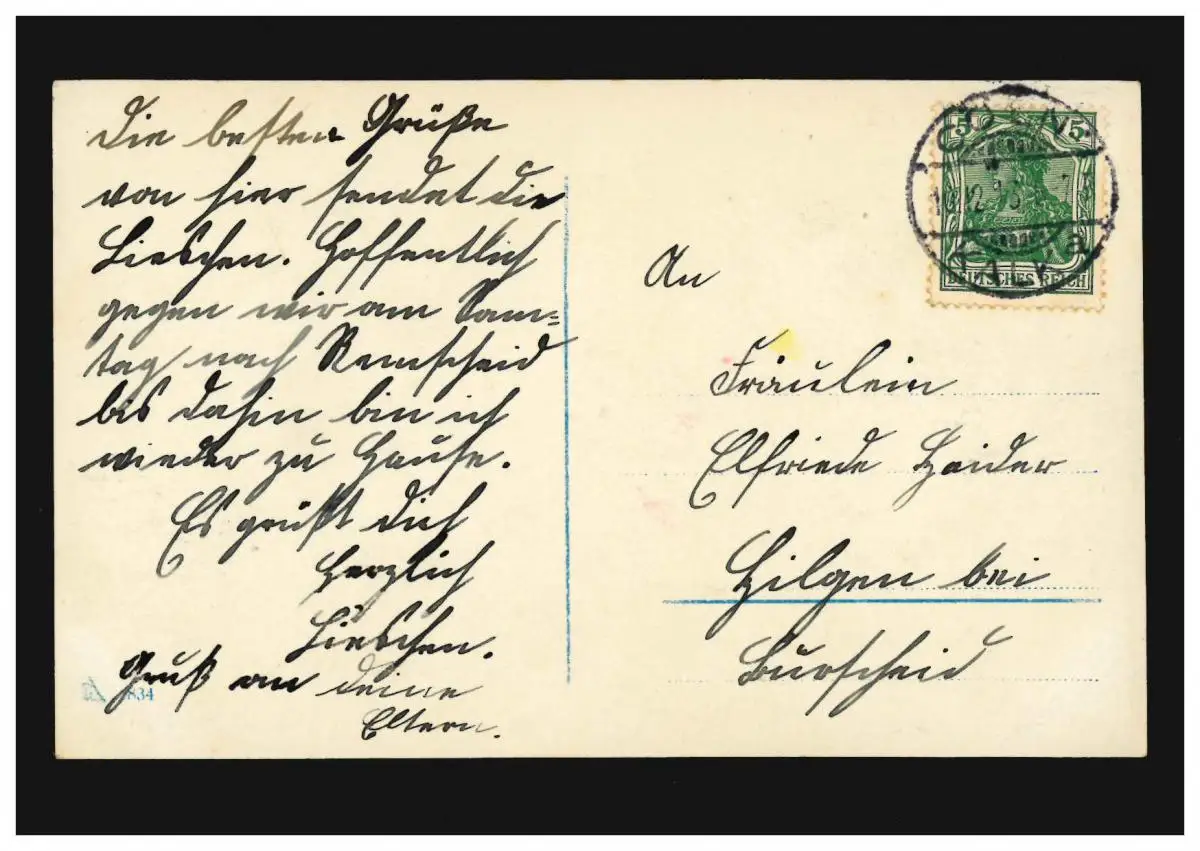 Die besten Grüße
von hier sendet die
Lieschen. Hoffentlich
gegen wir am Sam=
tag nach Remscheid
bis dahin bin ich
wieder zu Hause.
Es grüßt dich
herzlich
Lieschen.
Gruß an deine
Eltern.
834
An
Fräulein
Elfriede Haider
Hilgen bei
Burscheid
5 5
DEUTSCHES REICH
CÖLN
12
a